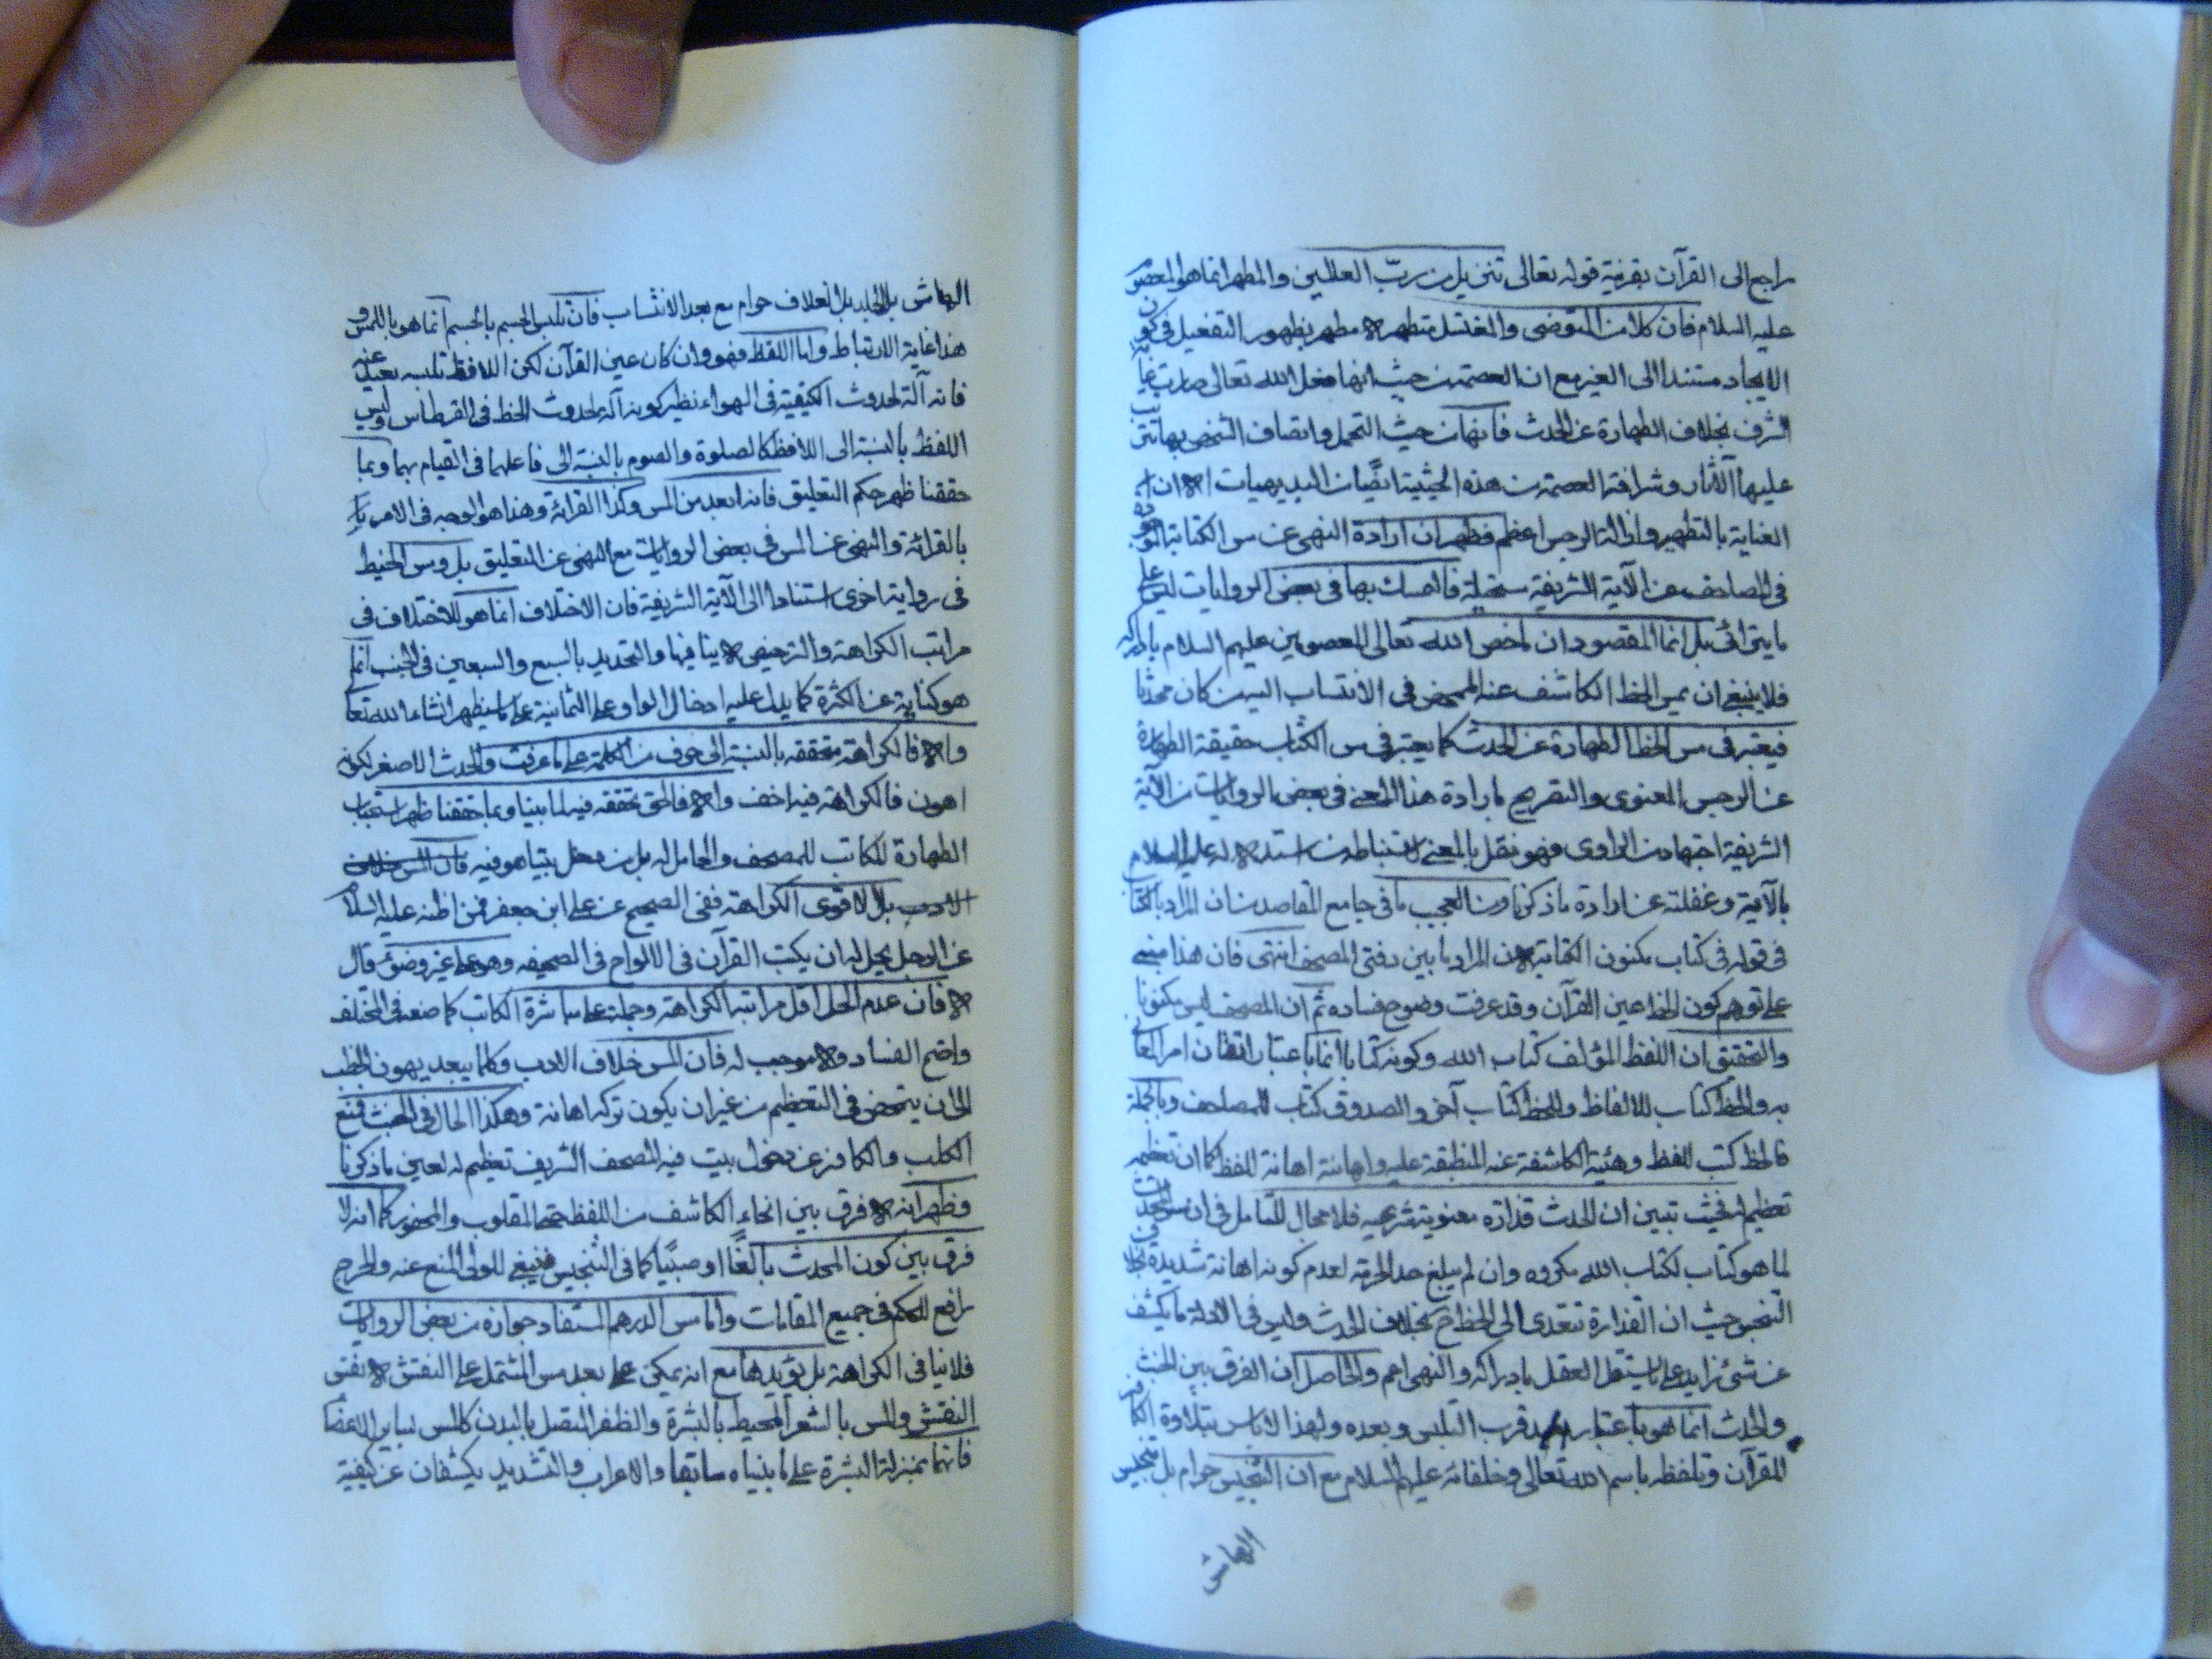 راجع الى القرآن بقرنية قوله تعالى تنزيل من ربّ العالمين والمطهر انما هو المعصوم
عليه السلام فان كلا من المتوضى والمغتسل متطهر لا مطهر بظهور التفعيل في كون
الايجاد مستندا الى الغير مع ان العصمة من حيث انها فعل الله تعالى صارت غاية
الشرف بخلاف الطهارة عن الحدث فانها من حيث التحمل واتصاف الشخص بها تترتب
عليها الآثار وشرافة العصمة من هذه الحيثية ايضًا من البديهيات
العناية بالتطهير وازالة الرجس اعظم فظهر ان ارادة النهى عن مس الكتابة
في المصاحف من الآية الشريفة مستحيلة فالتمسك بها في بعض الروايات ليس على
ما يترائى بل انما المقصود ان ما خص الله تعالى المعصومين عليهم السلام بادراكه
فلا ينبغي ان يمس الخط الكاشف عنه الممحض في الانتساب اليه من كان محدثا
فيعتبر في مس الخط الطهارة عن الحدث كما يعتبر في مس الكتاب حقيقة الطهارة
عن الرجس المعنوى والتصريح بارادة هذا المعنى في بعض الروايات من الآية
الشريفة اجتهاد من الراوى فهو نقل بالمعنى لاستنباطه من استدلاله عليه السلام
بالآية وغفلته عن ارادة ما ذكرنا ومن العجيب ما في جامع المقاصد من ان المراد بالكتاب
في قوله في كتاب مكنون الكتابة لان المراد ما بين دفتى المصحف انتهى فان هذا مبنى
على توهم كون الخط عين القرآن وقد عرفت وضوح فساده ثم ان المصحف ليس مكنونا
والتحقيق ان اللفظ المؤلف كتاب الله وكونه كتابا انما باعتبار اتقان امر المعانى
به والخط كتاب للالفاظ واللحظ كتاب آخر والصدوق كتاب للمصاحف وبالجملة
فالخط كتب اللفظ وهئية الكاشفة عنه المنطبقة عليه واهانته اهانة اللفظ كما ان تعظيمه
تعظيم له فحيث تبين ان الحدث قذارة معنوية شرعيه فلا مجال للتامل في ان مس المحدث
لما هو كتاب لكتاب الله مكروه وان لم يبلغ حد الحرمة لعدم كونه اهانة شديدة بخلاف
التنجيس حيث ان القذارة تتعدى الى الخط ح بخلاف الحدث وليس في الادلة ما يكشف
عن شئ زايد على ما يستقل العقل بادراكه والنهى اعم والحاصل ان الفرق بين الخبث
والحدث انما هو باعتبار قرب التلبس وبعده ولهذا لا باس بتلاوة الكافر
القرآن وتلفظه باسم الله تعالى وخلفائه عليهم السلام مع ان التنجيس حرام بل تنجيس
الهاش
الهاش بل الجلد بل الغلاف حرام مع بعد الانتساب فان تلبس الجسم بالجسم انما هو باللمس و
هذا غاية الارتباط واما اللفظ فهو وان كان عين القرآن لكن اللافظ تلبسه بعيد عنه
فانه آلة لحدوث الكيفية في الهواء نظير كونه آلة لحدوث الخط في القرطاس وليس
اللفظ بالنسبة الى اللافظ كالصلوة والصوم بالنسبة الى فاعلهما في القيام بهما وبما
حققنا ظهر حكم التعليق فانه ابعد من المس وكذا القرائة وهذا هو الوجه في الامر
بالقرائة والنهى عن المس في بعض الروايات مع النهى عن التعليق بل ومس الخيط
في رواية اخرى استنادا الى الآية الشريفة فان الاختلاف انما هو للاختلاف في
مراتب الكراهة والترخيص لا ينافيها والتحديد بالسبع والسبعين في الجنب انما
هو كناية عن الكثرة كما يدل عليه ادخال الواو على الثمانية على ما سيظهر انشاء الله تعا
والا فالكراهة متحققه بالنسبة الى حرف من الكلمة على ما عرفت والحدث الاصغر لكونه
اهون فالكراهة فيه اخف والا فالحق تحققه فيه لما بينا وبما حققنا ظهر استحباب
الطهارة للكاتب للمصحف والحامل له بل من دخل بيتا هو فيه فان المس خلاف
الادب بل الاقوى الكراهة ففى الصحيح عن على ابن جعفر عمن اظنه عليه السلام
عن الرجل يحل له ان يكتب القرآن في الالواح في الصحيفه وهو على غير وضوء قال
لا فان عدم الحل اقل مراتبه الكراهة وحمله على مباشرة الكاتب كما صنعه في المختلف
واضح الفساد ولا موجب له فان المس خلاف الادب وكلما يبعد يهون الخطب
الى ان يتمحض في التعظيم من غير ان يكون تركه اهانة وهكذا الحال في الخبث فمنع
الكلب والكافر عن دخول بيت فيه المصحف الشريف تعظيم له لعين ما ذكرنا
وظهر انه لا فرق بين انحاء الكاشف من اللفظ حتى المقلوب والمحفور كما انه لا
فرق بين كون المحدث بالغًا او صبيًا كما في التنجيس فينبغي للولى المنع عنه والحرج
رافع للحكم في جميع المقامات واما مس الدرهم المستفاد جوازه من بعض الروايات
فلا ينافى الكراهة بل يؤيدها مع انه يمكن على بعد مس المشتمل على النقش لا نفس
النقش والمس بالشعر المحيط بالبشرة والظفر المتصل بالبدن كالمس بساير الاعضا
فانهما بمنزلة البشرة على ما بنياه سابقا والاعراب والتشديد يكشفان عن كيفية